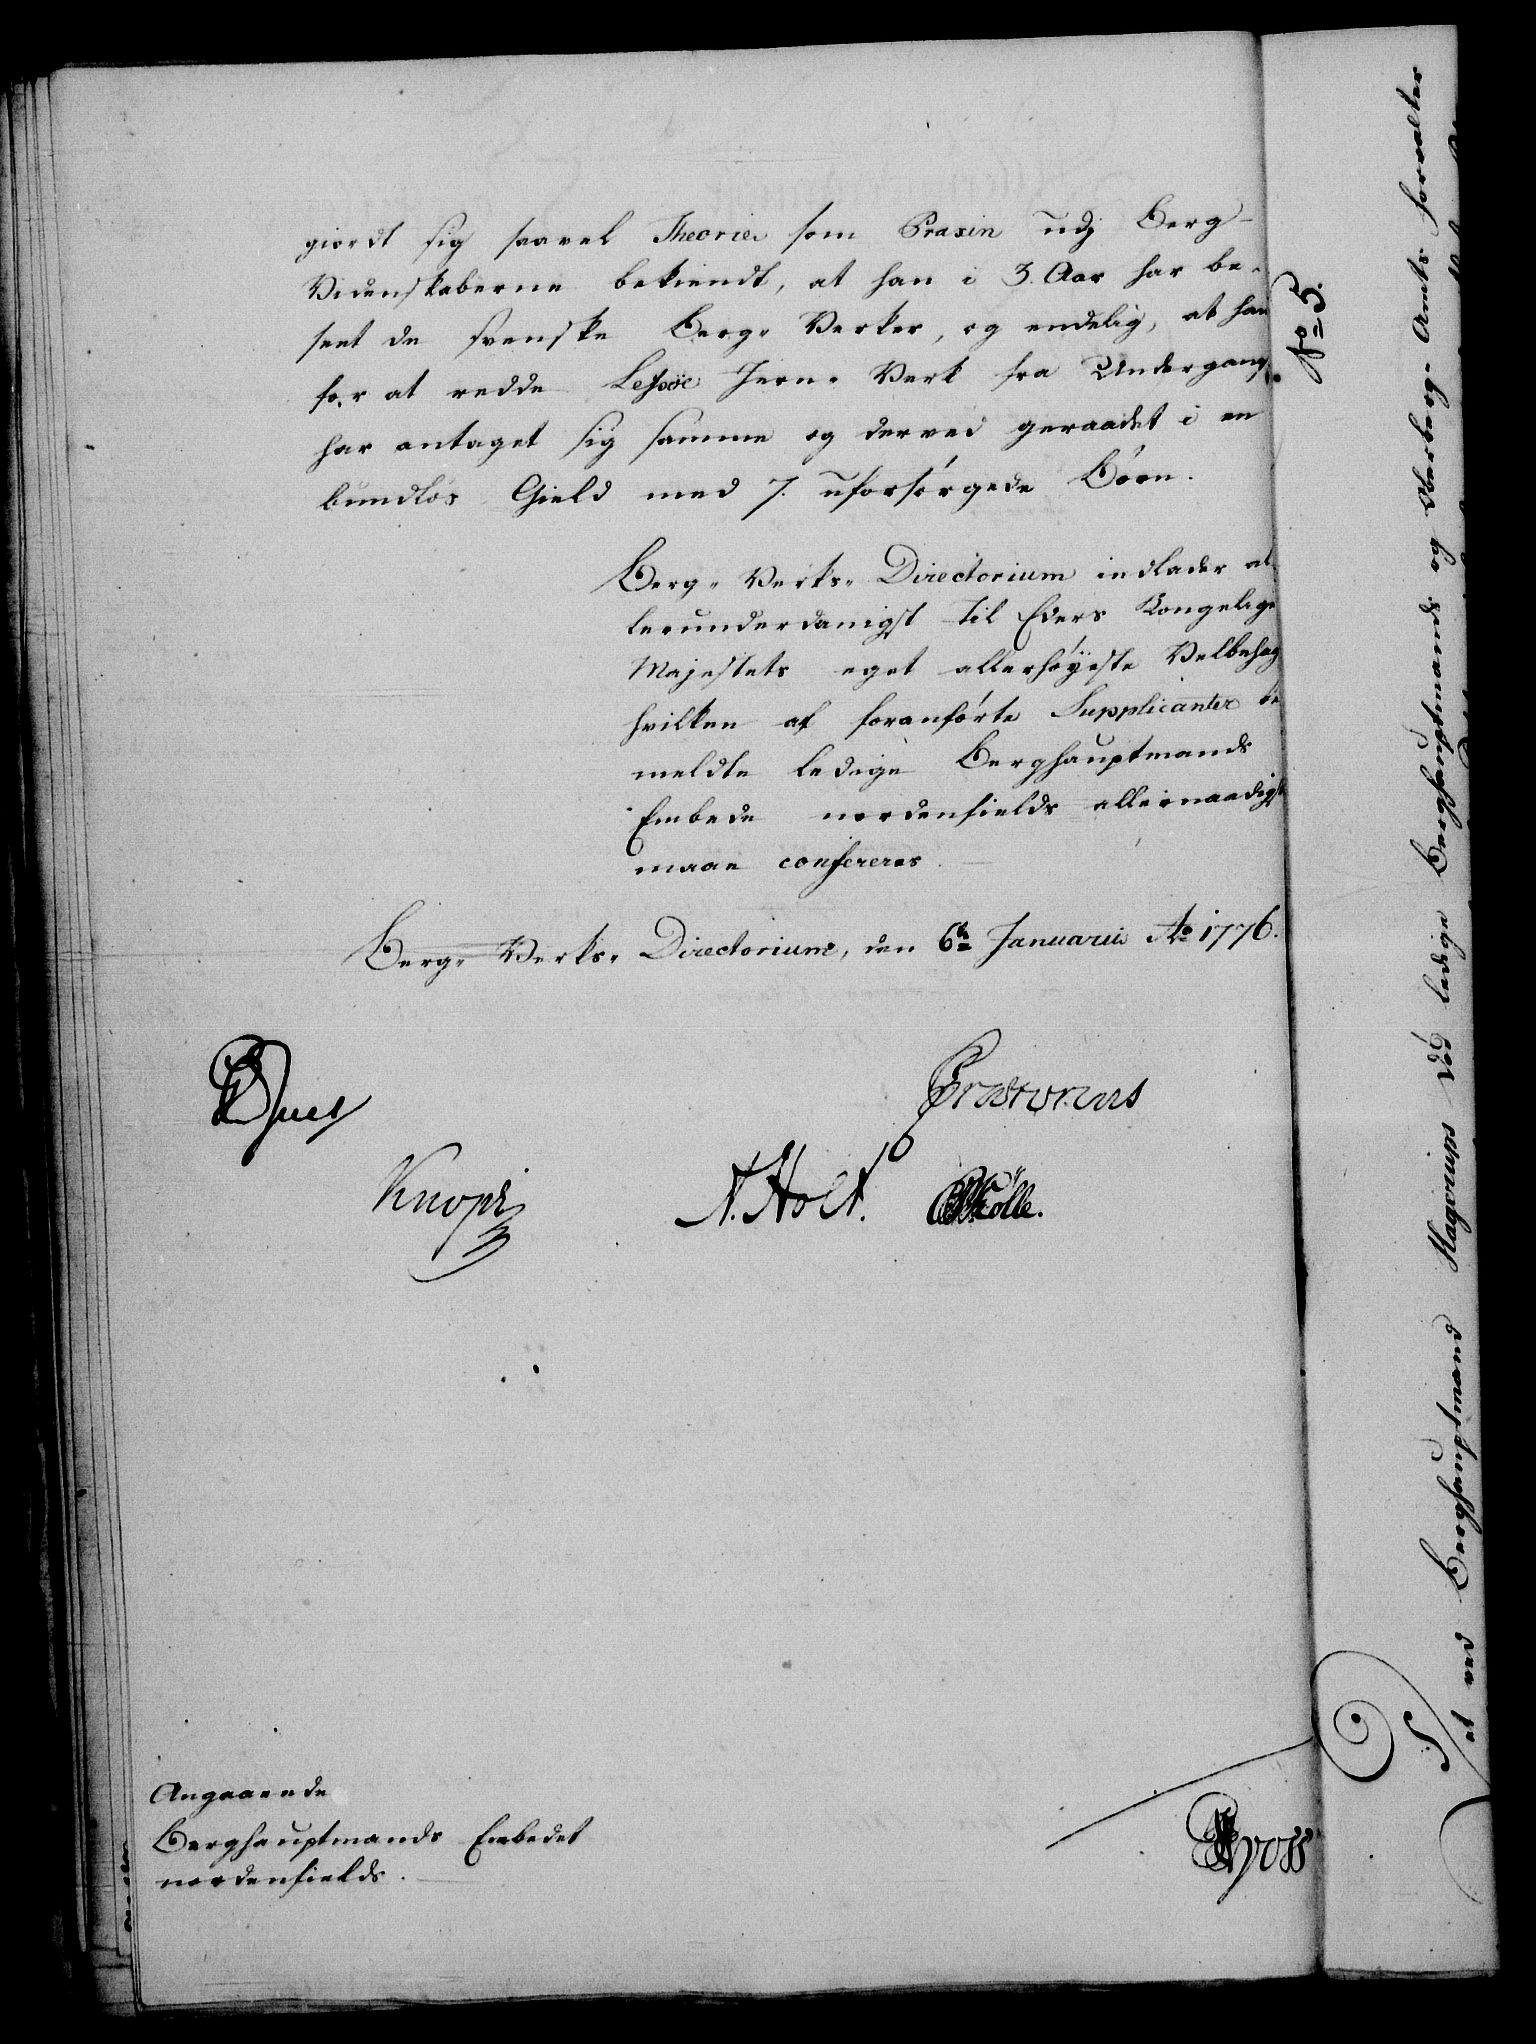 giordt sig saavel Theorier som Praxin udj Berg-
Videnskaberne bekiendt, at han i 3. Aar har be-
seet de svenske Berg- Verker, og endelig, at han
for at redde Lessøe Jern- Verk fra Undergang,
har antaget sig samme og derved geraadet i en
bundløs Gield med 7. uforsørgede Børn.
Berg- Verks- Directorium indlader al-
lerunderdanigst til Eders Kongelige
Majestets eget allerhøyeste Velbehag
hvilken af foranførte Supplicanter be
meldte ledige Berghauptmands
Embede nordenfields allernaadigst
maae confereres.
Berg- Verks- Directorium, den 6te Januarii Ao 1776.
Juel
Prætorius
Knoph
N. Holt.
Kölle.
Angaaende
Berghauptmands Embedet
nordenfields.
No 5.
at ved Berghauptmand Hagerups død ledige Berghauptmands og Oberberg- Amts forvalter